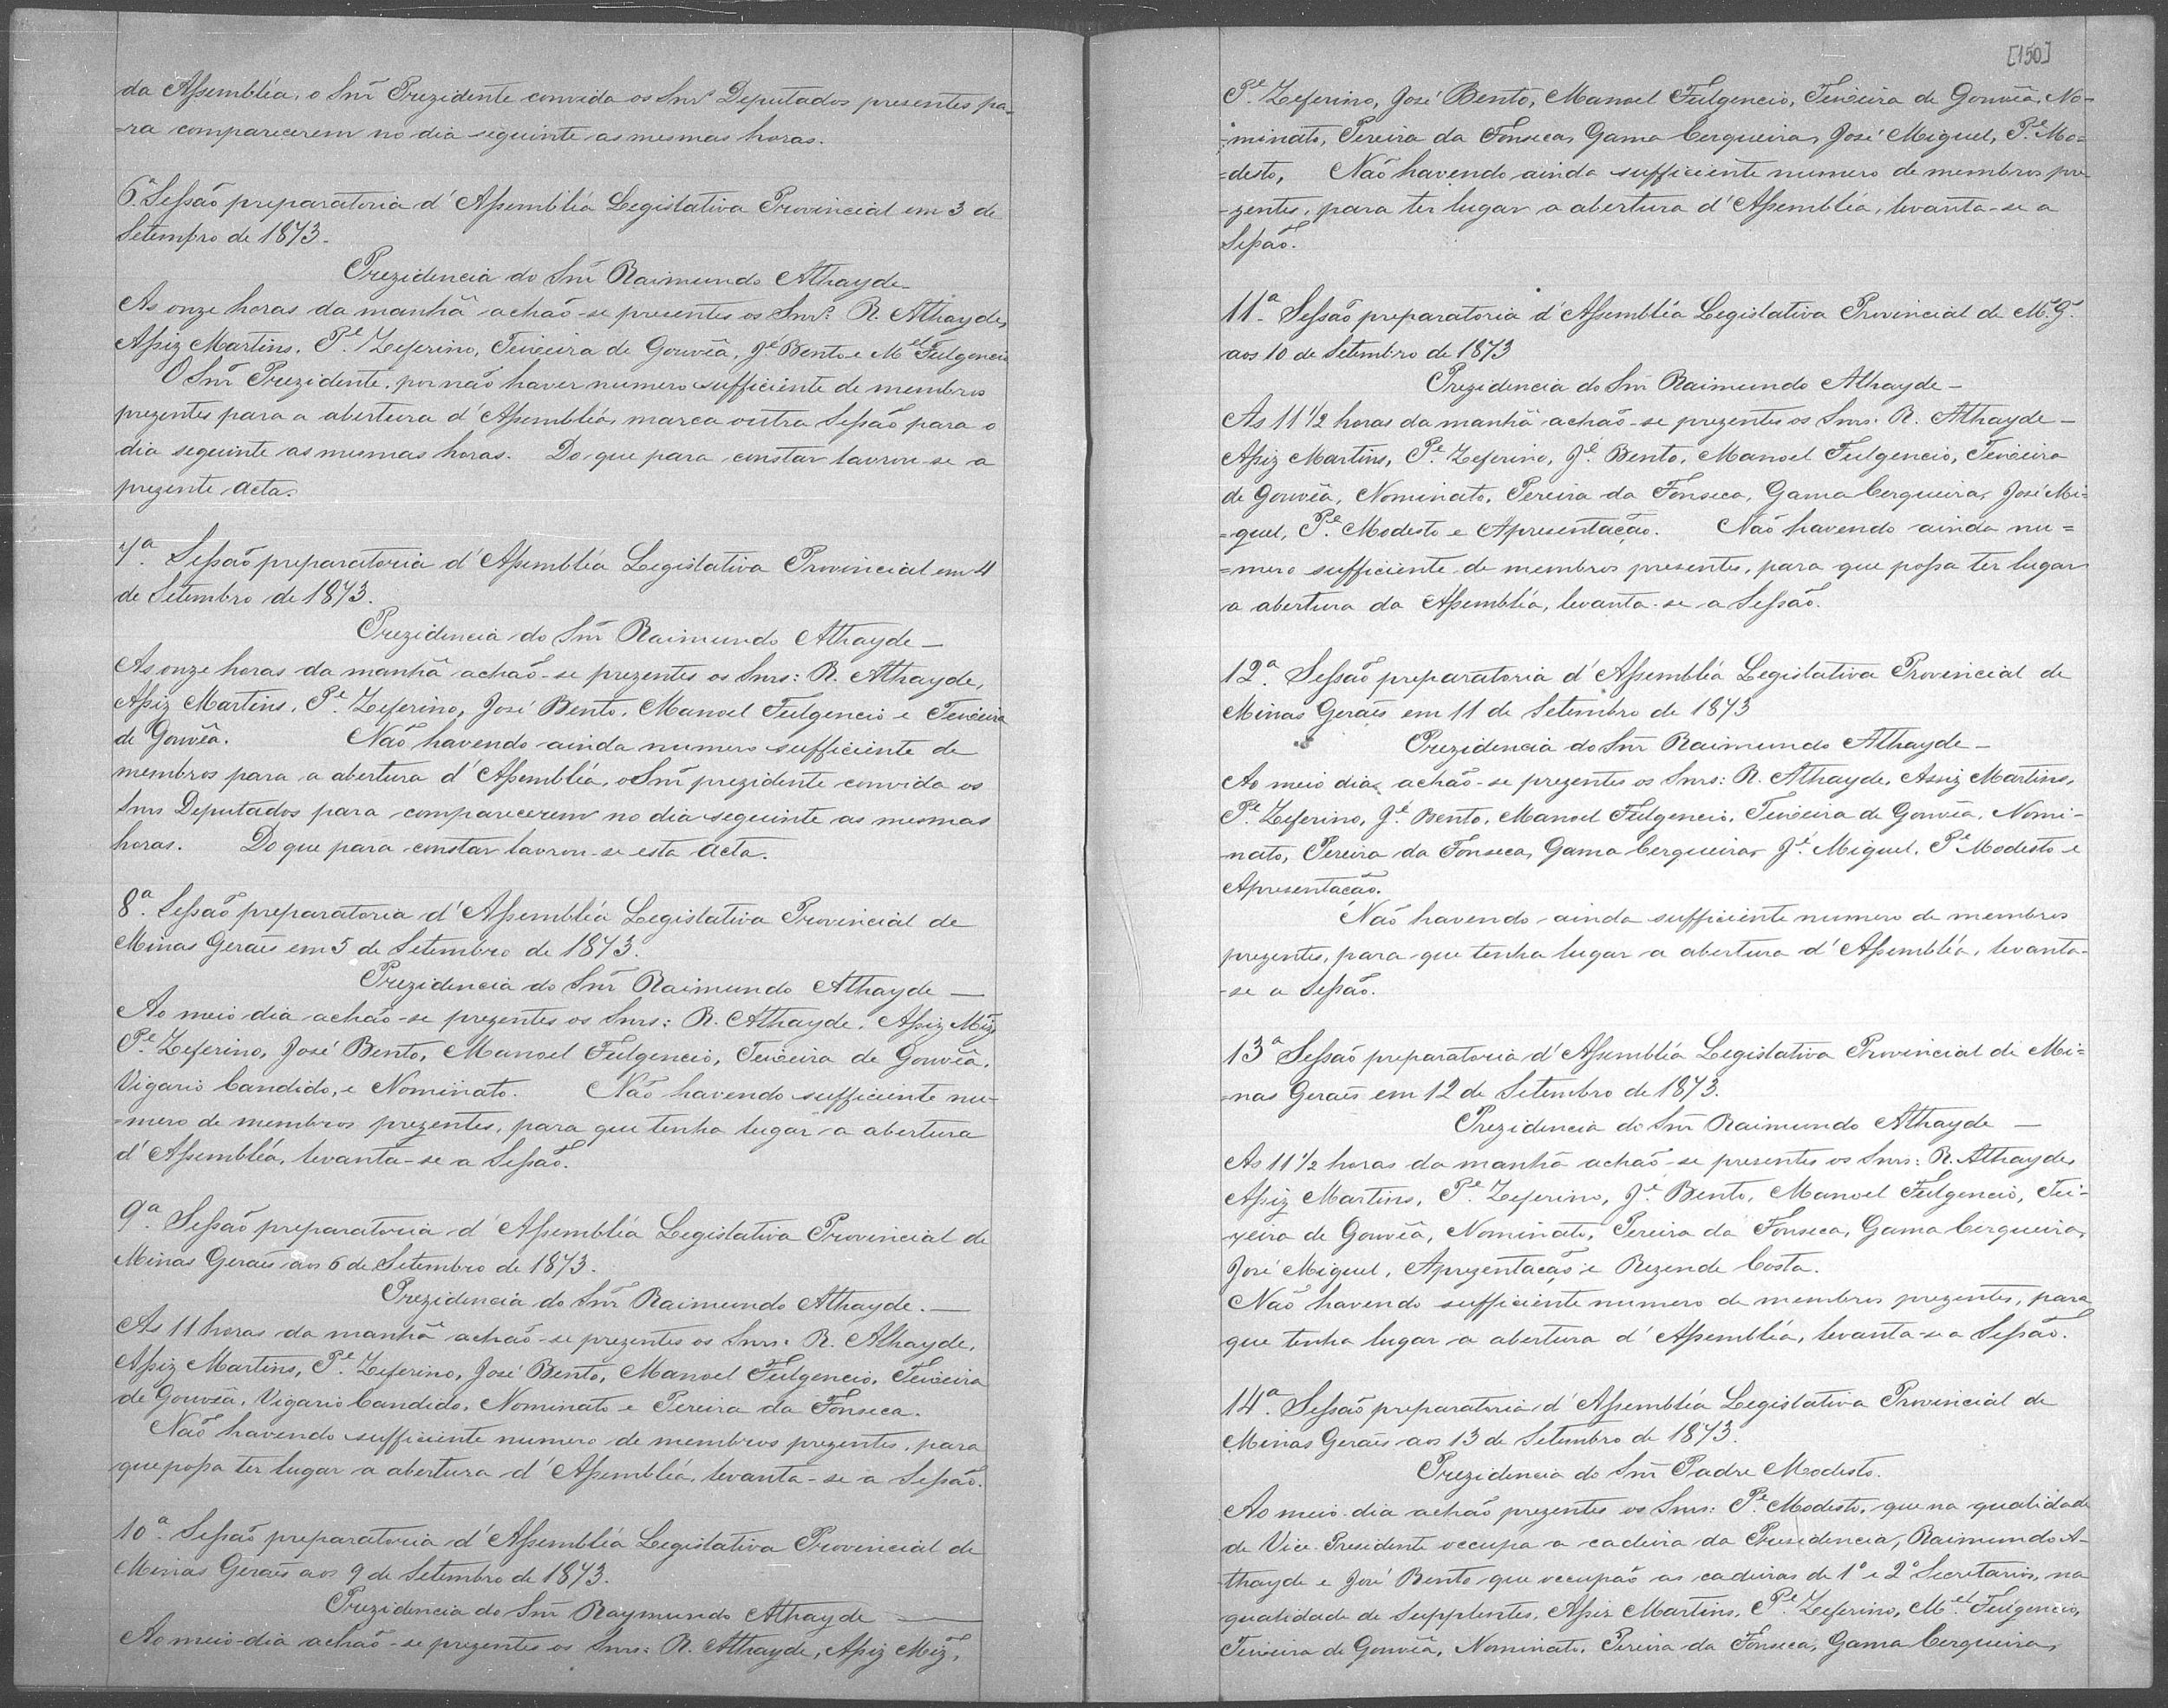 da Assembléa, o Snr Prezidente convida os Snrs Deputados presentes pa-
=ra comparecerem no dia seguinte as mesmas horas.
6ª Sessão preparatoria d'Assembléa Legislativa Provincial em 3 de
Setembro de 1873.
Prezidencia do Snr Raimundo Athayde
As onze horas da manhã achão-se presentes os Snrs. R. Athayde,
Assiz Martins, Pe. Zeferino, Teixeira de Gouvêa, Je Bento e Mel Fulgencio
O Snr Prezidente, por não haver numero sufficiente de membros
prezentes para a abertura d'Assembléa, marca outra Sessão para o
dia seguinte as mesmas horas. Do que para constar lavrou-se a
prezente acta.
7ª. Sessão preparatoria d'Assembléa Legislativa Provincial em 4
de Setembro de 1873.
Prezidencia do Snr Raimundo Athayde—
As onze horas da manhã achão-se prezentes os Snrs: R. Athayde,
Assiz Martins, Pe. Zeferino, José Bento, Manoel Fulgencio e Teixeira
de Gouvêa. Não havendo ainda numero sufficiente de
membros para a abertura d'Assembléa, o Snr prezidente convida os
Snrs Deputados para comparecerem no dia seguinte as mesmas
horas. Do que para constar lavrou-se esta acta.
8ª. Sessão preparatoria d'Assembléa Legislativa Provincial de
Minas Geraes em 5 de Setembro de 1873.
Prezidencia do Snr Raimundo Athayde —
Ao meio dia achão-se prezentes os Snrs: R. Athayde, Assiz Miz,
Pe. Zeferino, José Bento, Manoel Fulgencio, Teixeira de Gouvêa,
Vigario Candido, e Nominato. Não havendo sufficiente nu-
=mero de membros prezentes, para que tenha lugar a abertura
d'Assembléa, levanta-se a Sessão.
9ª. Sessão preparatoria d'Assembléa Legislativa Provincial de
Minas Geraes aos 6 de Setembro de 1873.
Prezidencia do Snr Raimundo Athayde.—
As 11 horas da manhã achão-se prezentes os Snrs: R. Athayde,
Assiz Martins, Pe. Zeferino, José Bento, Manoel Fulgencio, Teixeira
de Gouvêa, Vigario Candido, Nominato e Pereira da Fonseca.
Não havendo sufficiente numero de membros prezentes, para
que possa ter lugar a abertura d'Assembléa, levanta-se a Sessão.
10ª. Sessão preparatoria d'Assembléa Legislativa Provincial de
Minas Geraes aos 9 de Setembro de 1873.
Prezidencia do Snr Raymundo Athayde —
Ao meio-dia achão-se prezentes os Snrs: R. Athayde, Assiz Miz,
[150]
Pe. Zeferino, José Bento, Manoel Fulgencio, Teixeira de Gouvêa, No-
=minato, Pereira da Fonseca, Gama Cerqueira, José Miguel, Pe. Mo=
=desto, Não havendo ainda sufficiente numero de membros pre
-zentes, para ter lugar a abertura d'Assembléa, levanta-se a
Sessão.
11ª. Sessão preparatoria d'Assembléa Legislativa Provincial de M. G.
aos 10 de Setembro de 1873
Prezidencia do Snr Raimundo Athayde—
As 11 1/2 horas da manhã achão-se prezentes os Snrs: R. Athayde—
Assiz Martins, Pe. Zeferino, Je. Bento, Manoel Fulgencio, Teixeira
de Gouvêa, Nominato, Pereira da Fonseca, Gama Cerqueira, José Mi=
=guel, Pe. Modesto e Apresentação. Não havendo ainda nu=
=mero sufficiente de membros presentes, para que possa ter lugar
a abertura da Assembléa, levanta-se a Sessão.
12ª. Sessão preparatoria d'Assembléa Legislativa Provincial de
Minas Geraes em 11 de Setembro de 1873
Prezidencia do Snr Raimundo Athayde—
Ao meio dia, achão-se prezentes os Snrs: R. Athayde, Assiz Martins,
Pe. Zeferino, Je. Bento, Manoel Fulgencio, Teixeira de Gouvêa, Nomi-
-nato, Pereira da Fonseca, Gama Cerqueira, Je. Miguel, Pe Modesto e
Apresentação.
Não havendo ainda sufficiente numero de membros
prezentes, para que tenha lugar a abertura d'Assembléa, levanta-
-se a Sessão.
13ª Sessão preparatoria d'Assembléa Legislativa Provincial de Mi=
=nas Geraes em 12 de Setembro de 1873.
Prezidencia do Snr Raimundo Athayde —
As 11 1/2 horas da manhã achão-se presentes os Snrs: R. Athayde,
Assiz Martins, Pe. Zeferino, Je. Bento, Manoel Fulgencio, Tei-
xeira de Gouvêa, Nominato, Pereira da Fonseca, Gama Cerqueira,
José Miguel, Aprezentação e Rezende Costa.
Não havendo sufficiente numero de membros prezentes, para
que tenha lugar a abertura d'Assembléa, levanta-se a Sessão.
14ª. Sessão preparatoria d'Assembléa Legislativa Provincial de
Minas Geraes aos 13 de Setembro de 1873.
Prezidencia do Snr Padre Modesto.
Ao meio dia achão prezentes os Snrs: Pe. Modesto, que na qualidade
de Vice Presidente occupa a cadeira da Presidencia, Raimundo A-
thayde e José Bento que occupão as cadeiras de 1º e 2º Secretarios, na
qualidade de Supplentes, Assiz Martins, Pe. Zeferino, Mel. Fulgencio,
Teixeira de Gouvêa, Nominato, Pereira da Fonseca, Gama Cerqueira,